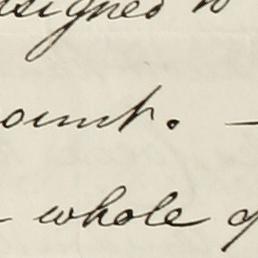 signed to
ount. —
whole of